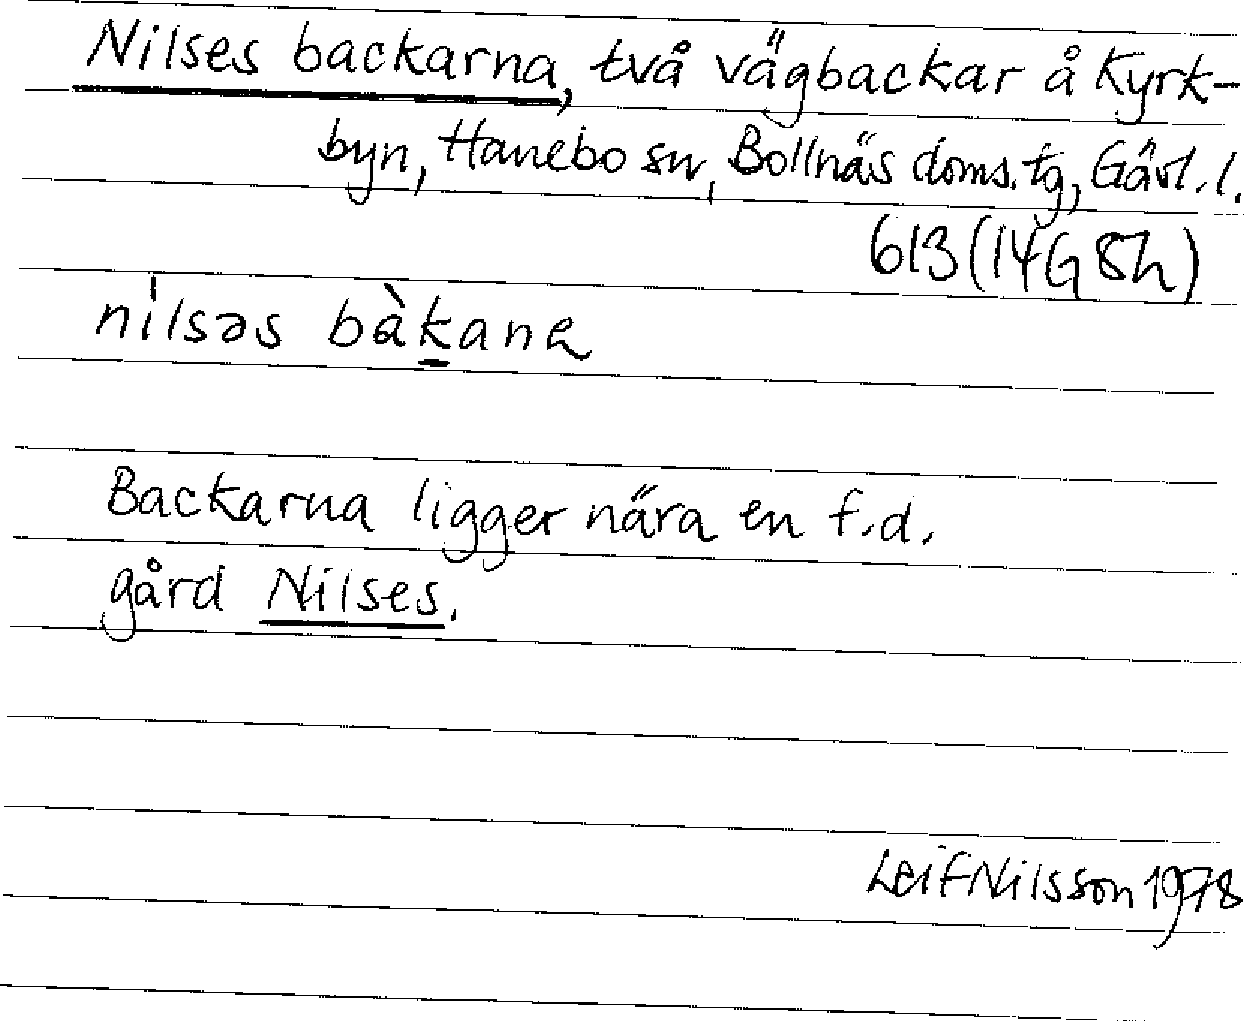 Nilses backarna, två vägbackar å Kyrk-
byn, Hanebo sn, Bollnäs doms. tg, Gävl. l.
613 (14G 8h)
nilsəs bàkane
Backarna ligger nära en f.d.
gård Nilses.
Leif Nilsson 1978